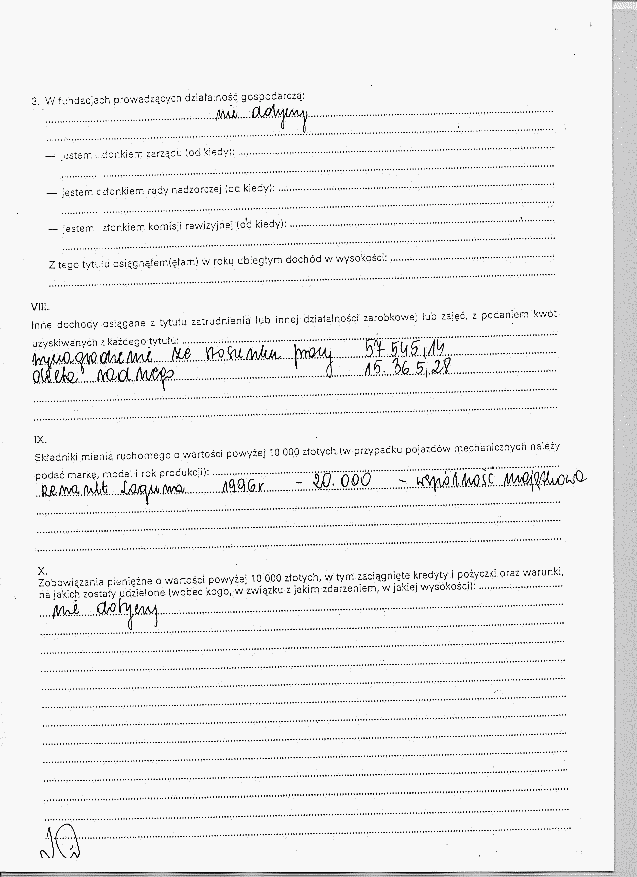 3. W fundacjach prowadzących działalność gospodarczą:
nie dotyczy
— jestem członkiem zarządu (od kiedy):
— jestem członkiem rady nadzorczej (od kiedy):
— jestem członkiem komisji rewizyjnej (od kiedy):
Z tego tytułu osiągnąłem(ęłam) w roku ubiegłym dochód w wysokości:
VIII.
Inne dochody osiągane z tytułu zatrudnienia lub innej działalności zarobkowej lub zajęć, z podaniem kwot
uzyskiwanych z każdego tytułu:
wynagrodzenie ze stosunku pracy 57 545,14
dieta radnego 15.365,28
IX.
Składniki mienia ruchomego o wartości powyżej 10 000 złotych (w przypadku pojazdów mechanicznych należy
podać markę, model i rok produkcji):
Renault Laguna 1996r - 20.000 - wspólność majątkowa
X.
Zobowiązania pieniężne o wartości powyżej 10 000 złotych, w tym zaciągnięte kredyty i pożyczki oraz warunki,
na jakich zostały udzielone (wobec kogo, w związku z jakim zdarzeniem, w jakiej wysokości):
nie dotyczy